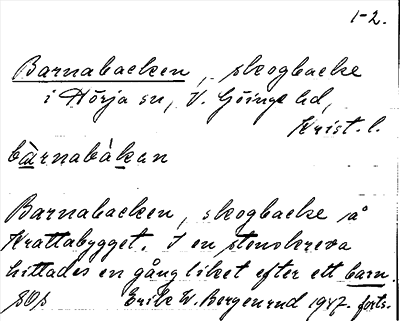 1-2.
Barnabacken, skogbacke
i Hörja sn, V. Göinge hd,
Krist. l.
bàrnabákan
Barnabacken, skogbacke å
Krattabygget. I en stenskreva
hittades en gång liket efter ett barn.
Erik W. Borgenrud 1947. forts.